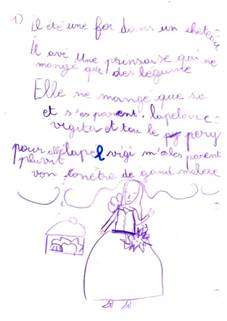 1)
il été une foi dans un chateau
il avé une prinsese qui ne
mange que des legume
Elle ne mange que sa
et s'es parent. lapelaire
vigitu et tou le pery
pour elle lapel vigi m'ai les parent
von conetre de grand malere